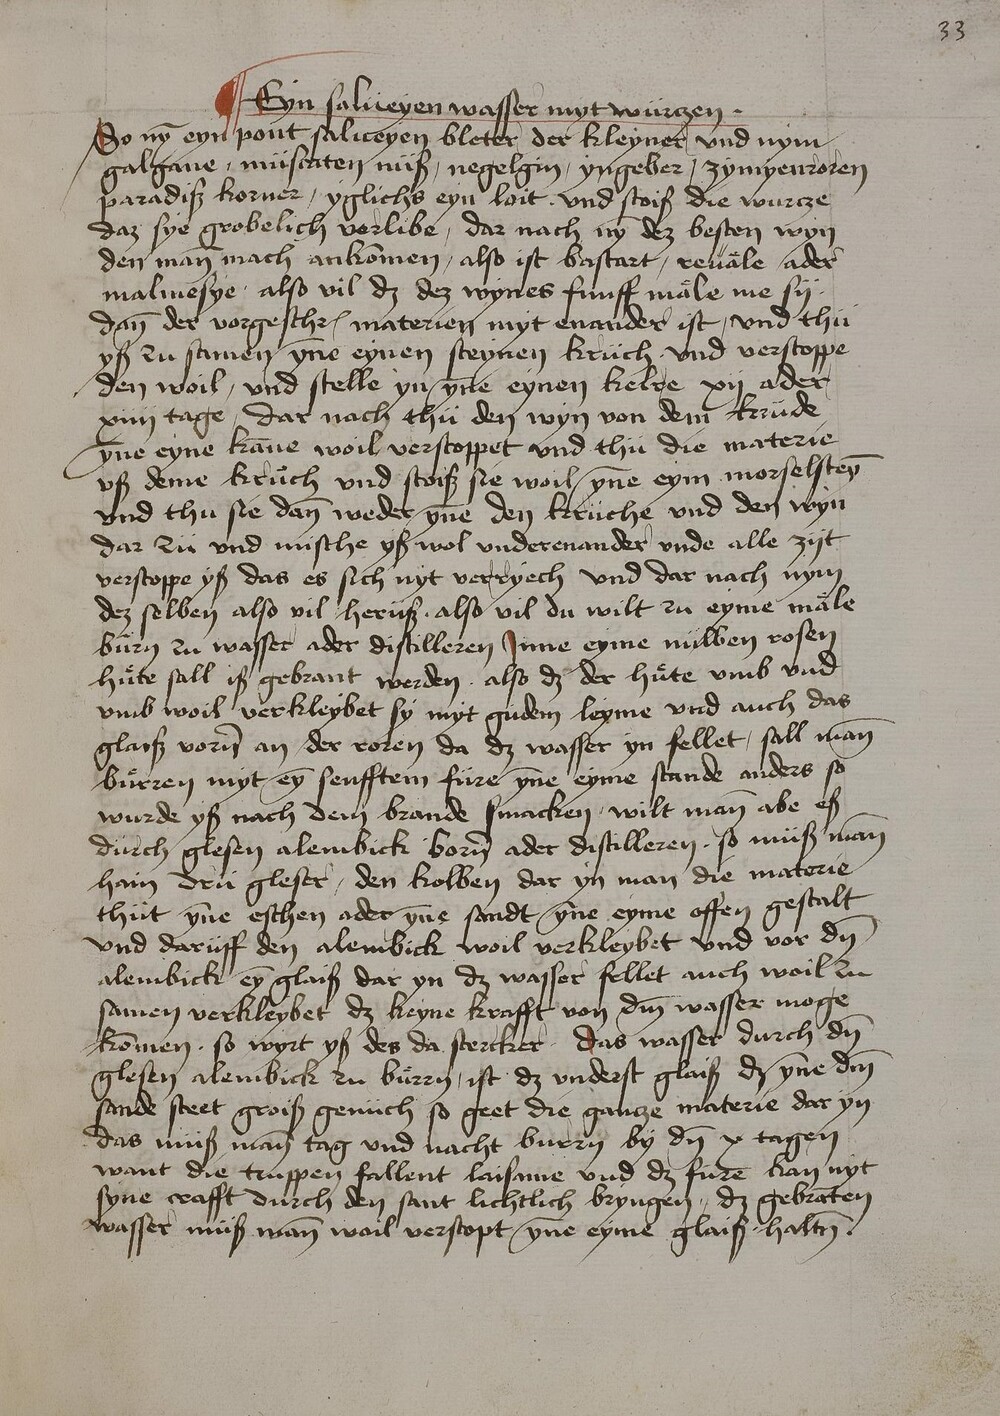 33
Eyn salueyen wasser myt wurtzen .
So ny̅ eyn pont salueyen bleter der kleyner vnd nym
galgane / muscaten nuß / negelgin / yngeber / zymyenroren
paradiß korner / yglichs eyn loit . vnd stoiß die wurcze
daz sye grobelich verlibe / dar nach ny̅ dez besten wyn
den man̅ mach ankomen / also ist bastart / reuale ader
maluesye . also vil dz dez wynes funff male me sij .
dan̅ der vorgeschr materien myt enander ist / vnd thu
yß zu samen yn̅e eynen steynen kruch . vnd verstoppe
den woil / vnd stelle yn yn̅e eynen kelre xij ader
xiiij tage / dar nach thu den wyn von dem krude
yn̅e eyne kan̅e woil verstoppet vnd thu die materie
vß deme kruch vnd stoiß sie woil yn̅e eym morselstey̅
vnd thu sie dan̅ weder yn̅e den kruche vnd den wyn
dar zu vnd mische yß wol vnderenander vnde alle zijt
verstoppe yß das es sich nyt verryech vnd dar nach nym
dez selben also vil heruß . also vil du wilt zu eyme male
burn zu wasser ader distilleren Inne eyme rosen
hute sall iß gebrant werden . also dz der hute vmb vnd
vmb woil verkleybet sy myt gudem leyme vnd auch das
glaiß vorn̅ an der roren da dz wasser yn fellet / sall man̅
burren myt ey̅ senfftem fure yn̅e eyme stande anders so
wurde yß nach dem brande smacken . wilt man̅ abe eß
durch glesen alembick born̅ ader distilleren . so muß man̅
hain dru gleser / den kolben dar yn man die materie
thut yn̅e eschen ader yn̅e sandt yn̅e eyme offen gestalt
vnd daruff den alembick woil verkleybet vnd vor dn̅
alembick ey̅ glaiß dar yn dz wasser fellet auch woil zu
samen verkleybet dz keyne krafft von dm̅ wasser moge
komen . so wyrt yß des da stercker . das wasser durch dn̅
glesen alembick zu burrn / ist dz vnderst glaiß dz yn̅e dm̅
sande steet groiß genuch so geet die gantze materie dar yn
das muß man̅ tag vnd nacht burrn by dn̅ x tagen
want die truppen fallent laisame vnd dz fure kan nyt
syne crafft durch den sant lichtlich bryngen / dz gebranten
wasser muß man̅ wail verstopt yn̅e eyme glaiß haltn̅ .